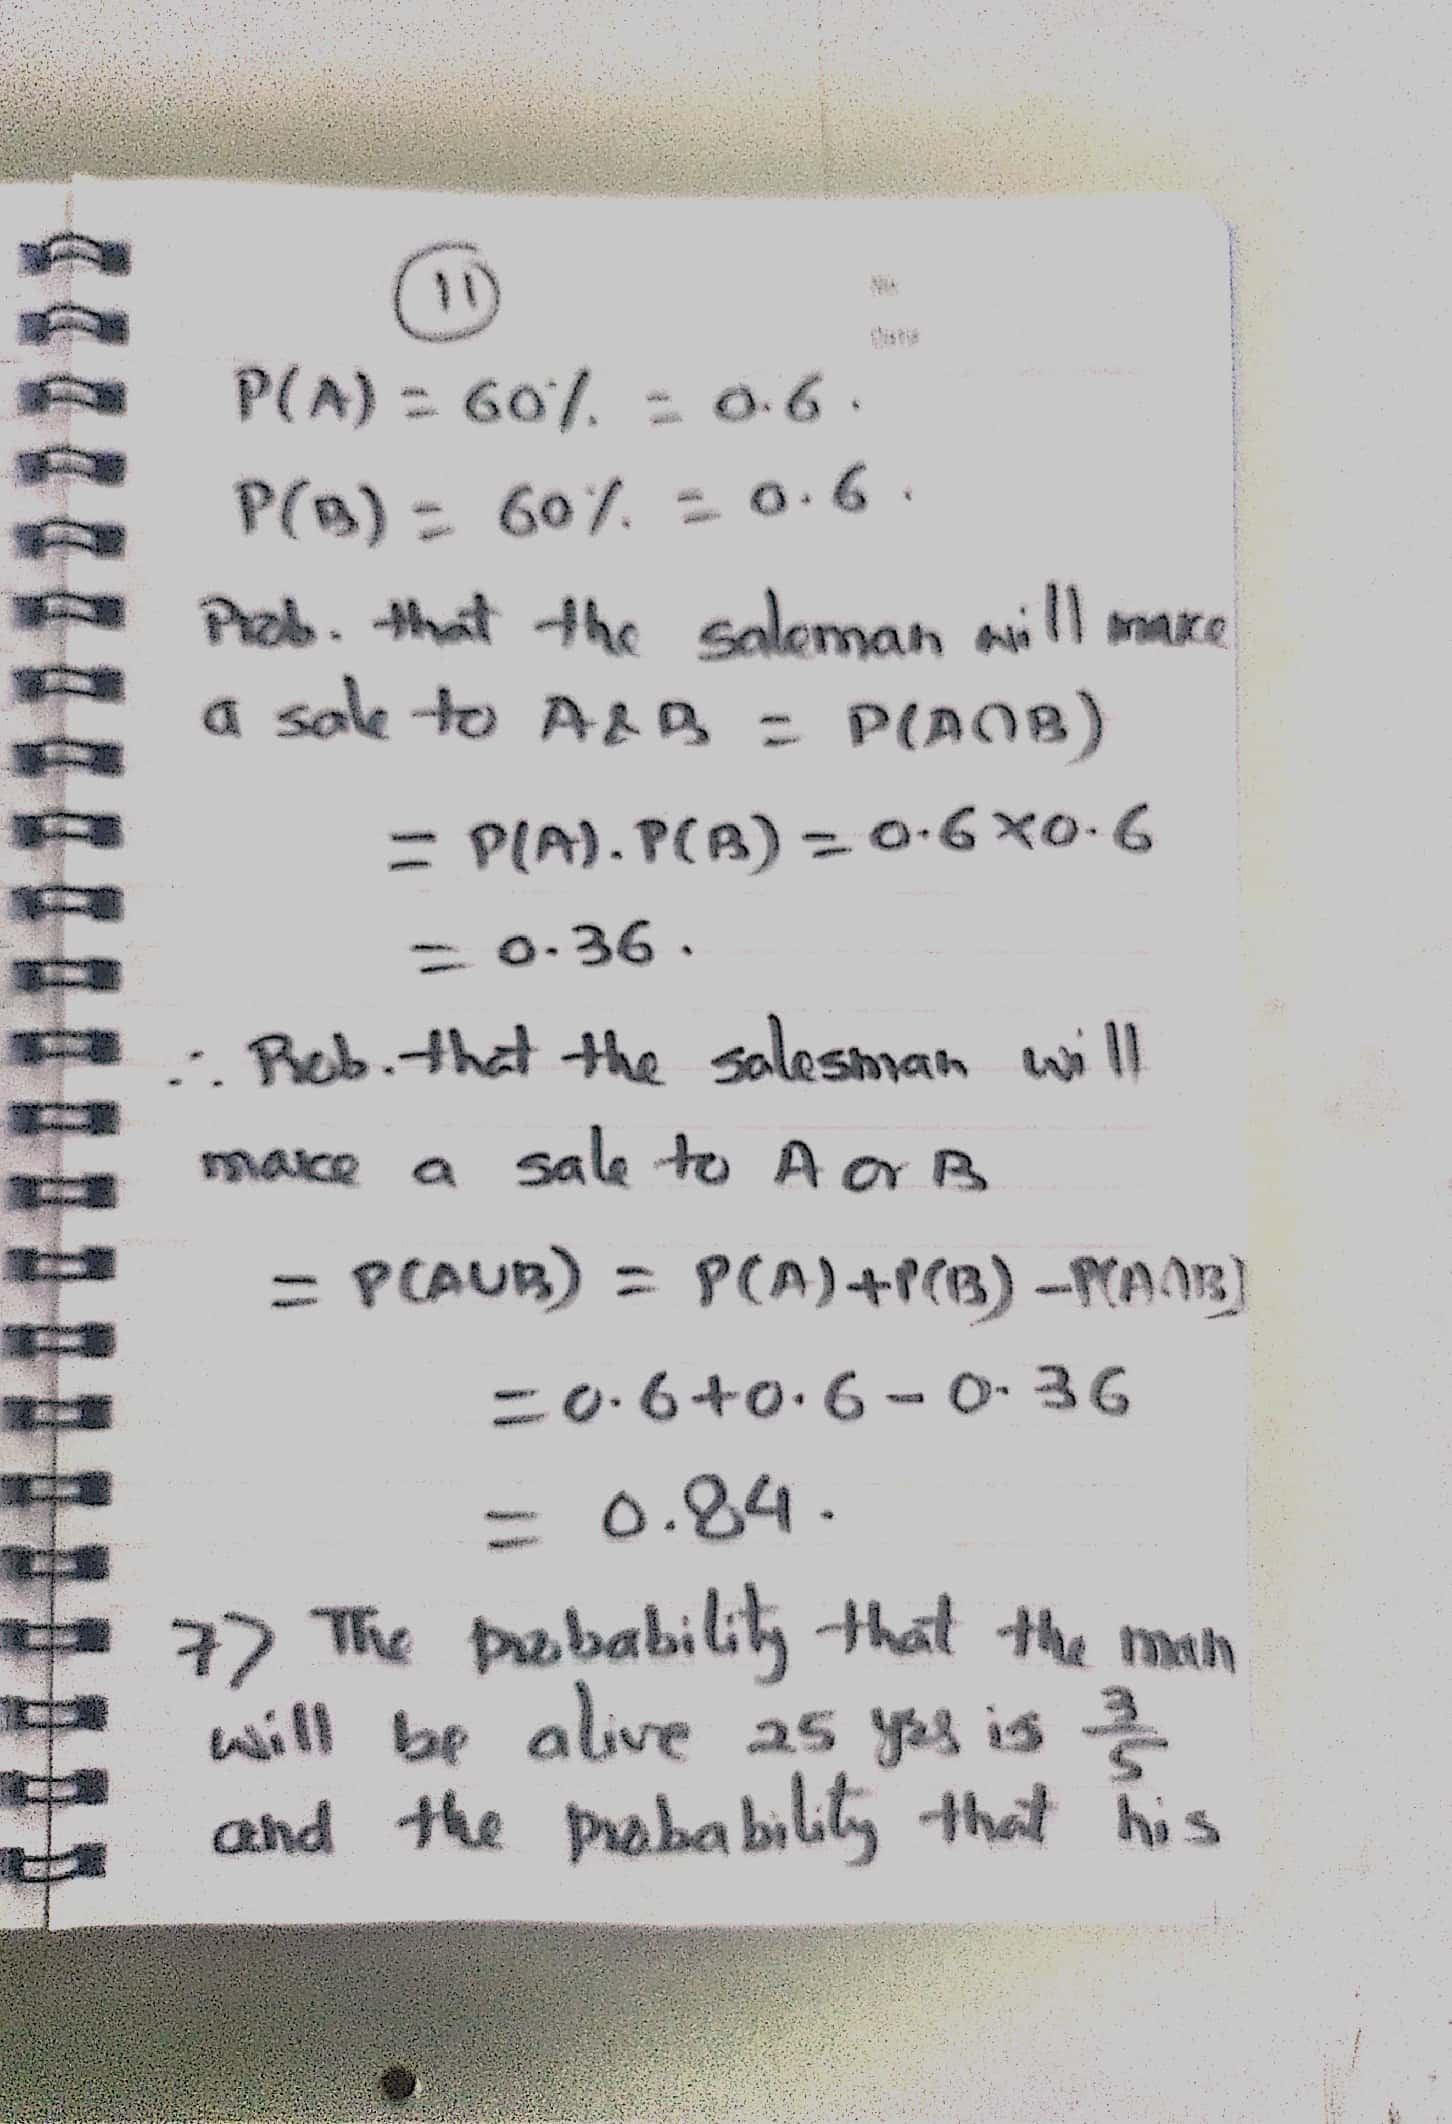 11
No
Date
P(A) = 60% = 0.6.
P(B) = 60% = 0.6.
Prob. that the saleman will make
a sale to A & B = P(A∩B)
= P(A).P(B) = 0.6×0.6
= 0.36.
∴ Prob. that the salesman will
make a sale to A or B
= P(A∪B) = P(A)+P(B)-P(A∩B)
= 0.6+0.6-0.36
= 0.84.
7> The probability that the man
will be alive 25 yrs is 3/5
and the probability that his